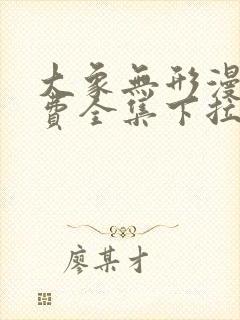 大象無形漫
費全集下拉
廖某才